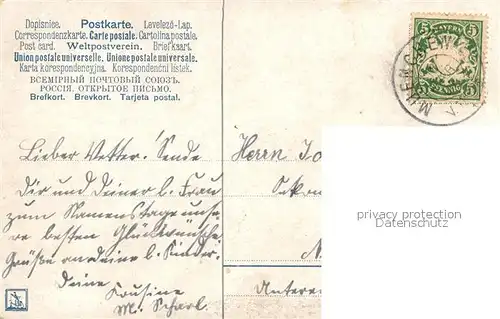 Dopisnice. Postkarte. Levelező-Lap.
Correspondenzkarte. Carte postale. Cartolina postale.
Post card. Weltpostverein. Briefkaart.
Union postale universelle. Unione postale universale.
Karta korespondencyjna. Korespondenční lístek.
ВСЕМІРНЫЙ ПОЧТОВЫЙ СОЮЗЪ.
РОССІЯ. ОТКРЫТОЕ ПИСЬМО.
Brefkort. Brevkort. Tarjeta postal.
BAYERN
5 5
PFENNIG
5 5
Lieber Vetter! Sende
Dir und Deiner l. Frau
zum Namenstage unse-
re besten Glückwünsche
Grüße an deine l. Kinder.
Deine
Kousine
M. Scharl.
Herrn Jo
privacy protection
Datenschutz
Unterer